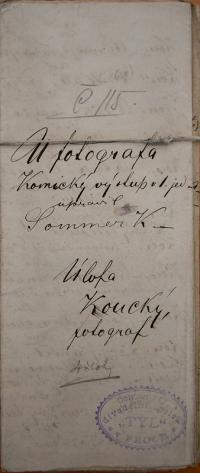 C. 115.
U fotografa
Komický výstup v 1. jed
upravil
Sommer K
Úloha
Koucký,
fotograf
"TYL"
V PROZE